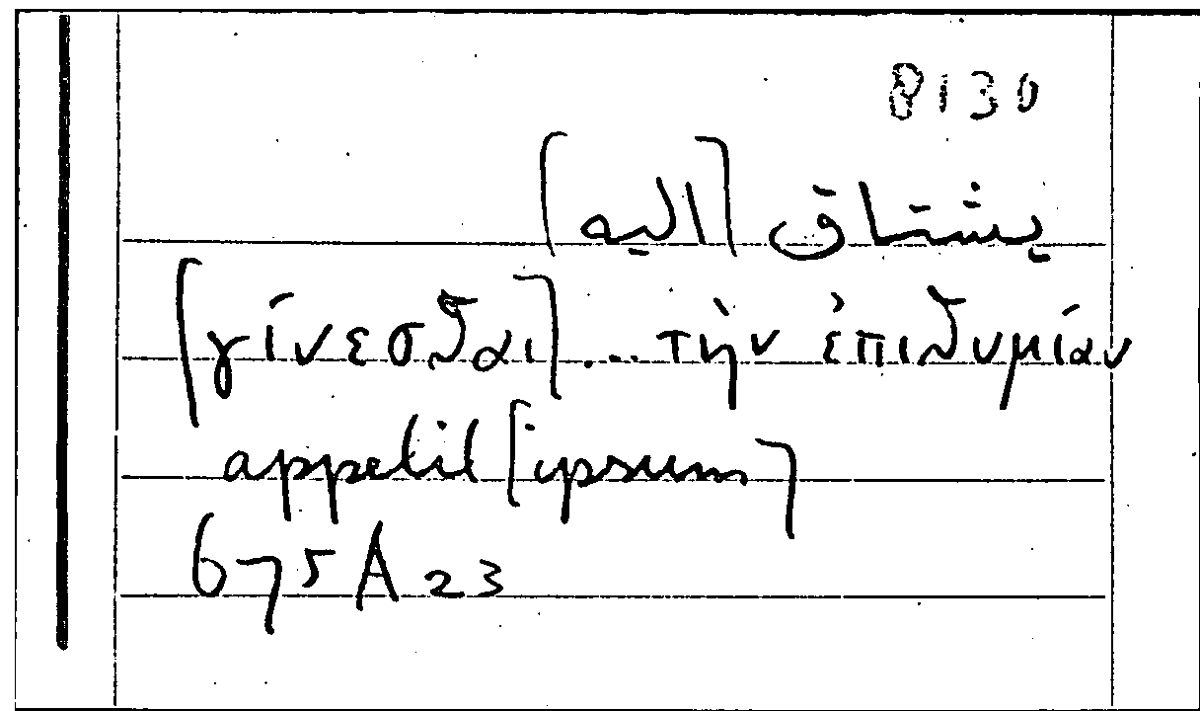 8130
يشتاق [اليه]
[γίνεσθαι] ... τὴν ἐπιθυμίαν
appetit [ipsum]
675 A 23